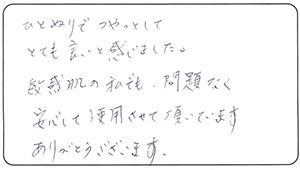 ひとぬりで つやっとして
とても良いと感じました。
敏感肌の私でも、問題なく
安心して使用させて頂いています
ありがとうございます.